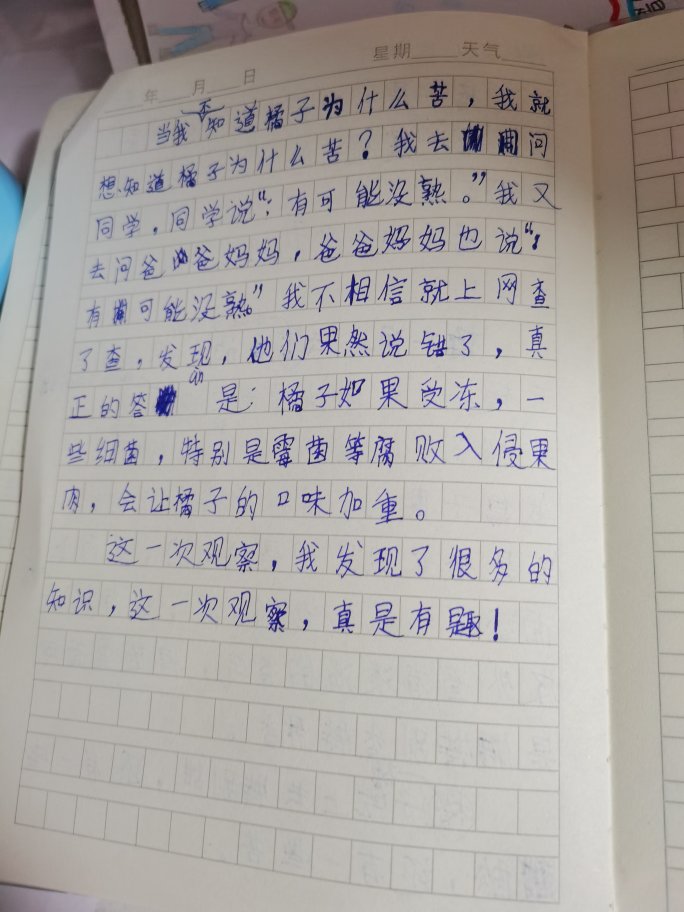 星期 天气
年 月 日
当我不知道橘子为什么苦，我就
想知道橘子为什么苦？我去问
同学，同学说“：有可能没熟。”我又
去问爸爸妈妈，爸爸妈妈也说“：
有可能没熟。”我不相信就上网查
了查，发现，他们果然说错了，真
正的答 是：橘子如果受冻，一
些细菌，特别是霉菌等腐败入侵果
肉，会让橘子的口味加重。
这一次观察，我发现了很多的
知识，这一次观察，真是有趣！